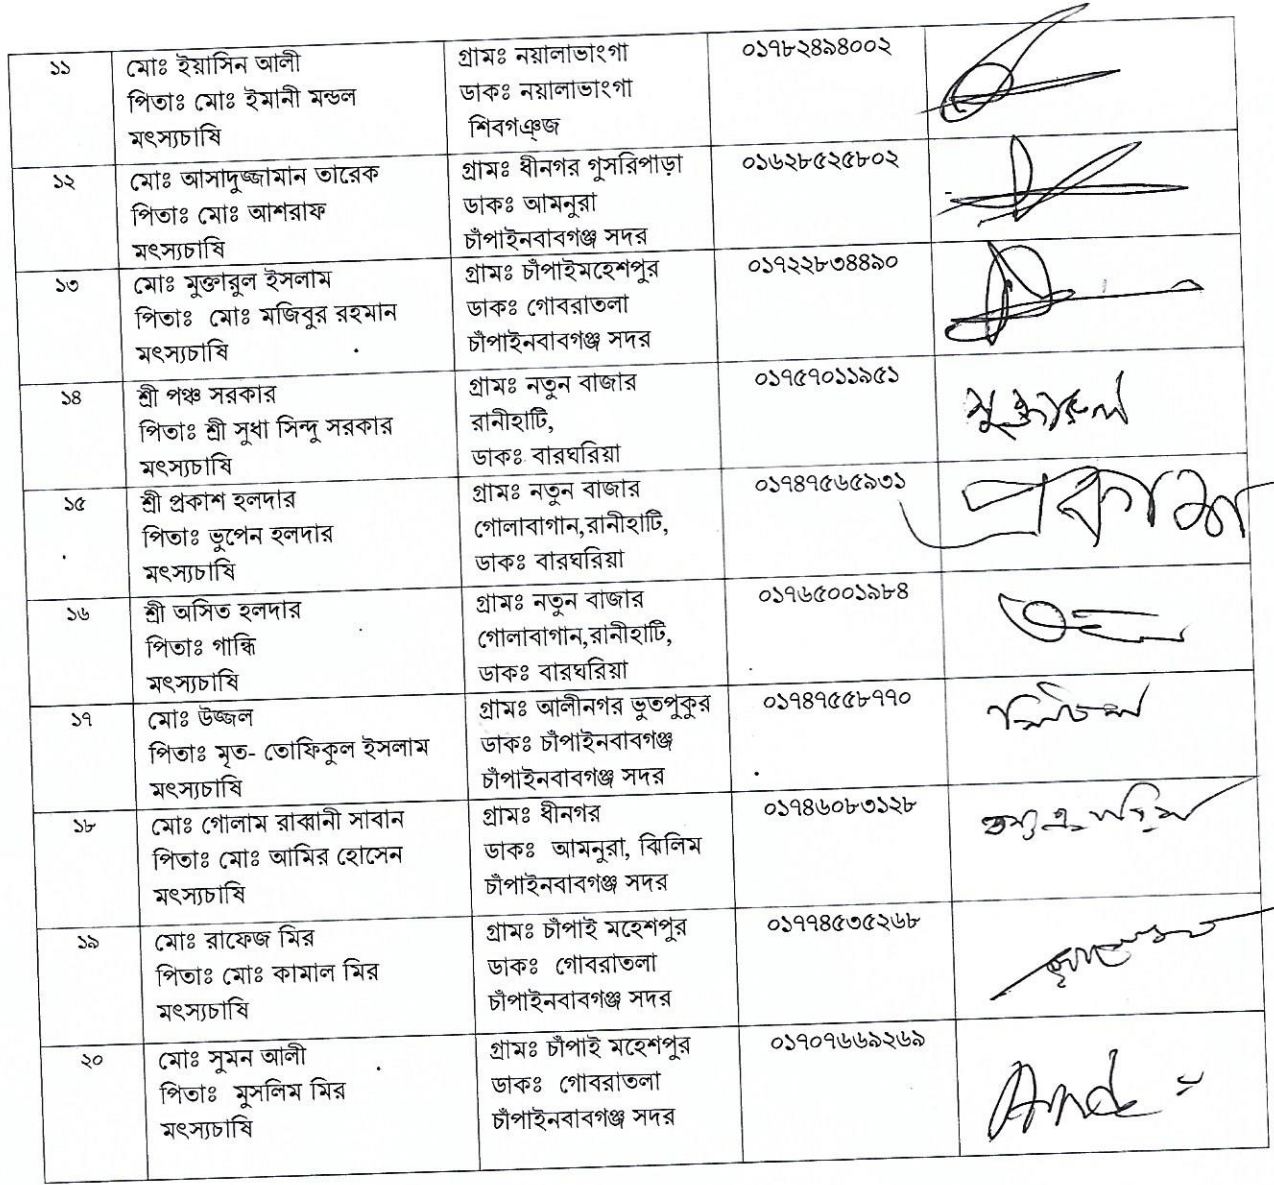 ১১
মোঃ ইয়াসিন আলী
পিতাঃ মোঃ ইমানী মন্ডল
মৎস্যচাষি
গ্রামঃ নয়ালাভাংগা
ডাকঃ নয়ালাভাংগা
শিবগঞ্জ
০১৭৮২৪৯৪০০২
১২
মোঃ আসাদুজ্জামান তারেক
পিতাঃ মোঃ আশরাফ
মৎস্যচাষি
গ্রামঃ ধীনগর গুসরিপাড়া
ডাকঃ আমনুরা
চাঁপাইনবাবগঞ্জ সদর
০১৬২৮৫২৫৮০২
১৩
মোঃ মুক্তারুল ইসলাম
পিতাঃ মোঃ মজিবুর রহমান
মৎস্যচাষি
গ্রামঃ চাঁপাইমহেশপুর
ডাকঃ গোবরাতলা
চাঁপাইনবাবগঞ্জ সদর
০১৭২২৮৩৪৪৯০
১৪
শ্রী পঞ্চ সরকার
পিতাঃ শ্রী সুধা সিন্দু সরকার
মৎস্যচাষি
গ্রামঃ নতুন বাজার
রানীহাটি,
ডাকঃ বারঘরিয়া
০১৭৫৭০১১৯৫১
মুক্তারুল
১৫
শ্রী প্রকাশ হলদার
পিতাঃ ভুপেন হলদার
মৎস্যচাষি
গ্রামঃ নতুন বাজার
গোলাবাগান,রানীহাটি,
ডাকঃ বারঘরিয়া
০১৭৪৭৫৬৫৯৩১
প্রকাশ
১৬
শ্রী অসিত হলদার
পিতাঃ গান্ধি
মৎস্যচাষি
গ্রামঃ নতুন বাজার
গোলাবাগান,রানীহাটি,
ডাকঃ বারঘরিয়া
০১৭৬৫০০১৯৮৪
১৭
মোঃ উজ্জল
পিতাঃ মৃত- তোফিকুল ইসলাম
মৎস্যচাষি
গ্রামঃ আলীনগর ভুতপুকুর
ডাকঃ চাঁপাইনবাবগঞ্জ
চাঁপাইনবাবগঞ্জ সদর
০১৭৪৭৫৫৮৭৭০
১৮
মোঃ গোলাম রাব্বানী সাবান
পিতাঃ মোঃ আমির হোসেন
মৎস্যচাষি
গ্রামঃ ধীনগর
ডাকঃ আমনুরা, ঝিলিম
চাঁপাইনবাবগঞ্জ সদর
০১৭৪৬০৮৩১২৮
১৯
মোঃ রাফেজ মির
পিতাঃ মোঃ কামাল মির
মৎস্যচাষি
গ্রামঃ চাঁপাই মহেশপুর
ডাকঃ গোবরাতলা
চাঁপাইনবাবগঞ্জ সদর
০১৭৭৪৫৩৫২৬৮
২০
মোঃ সুমন আলী
পিতাঃ মুসলিম মির
মৎস্যচাষি
গ্রামঃ চাঁপাই মহেশপুর
ডাকঃ গোবরাতলা
চাঁপাইনবাবগঞ্জ সদর
০১৭০৭৬৬৯২৬৯